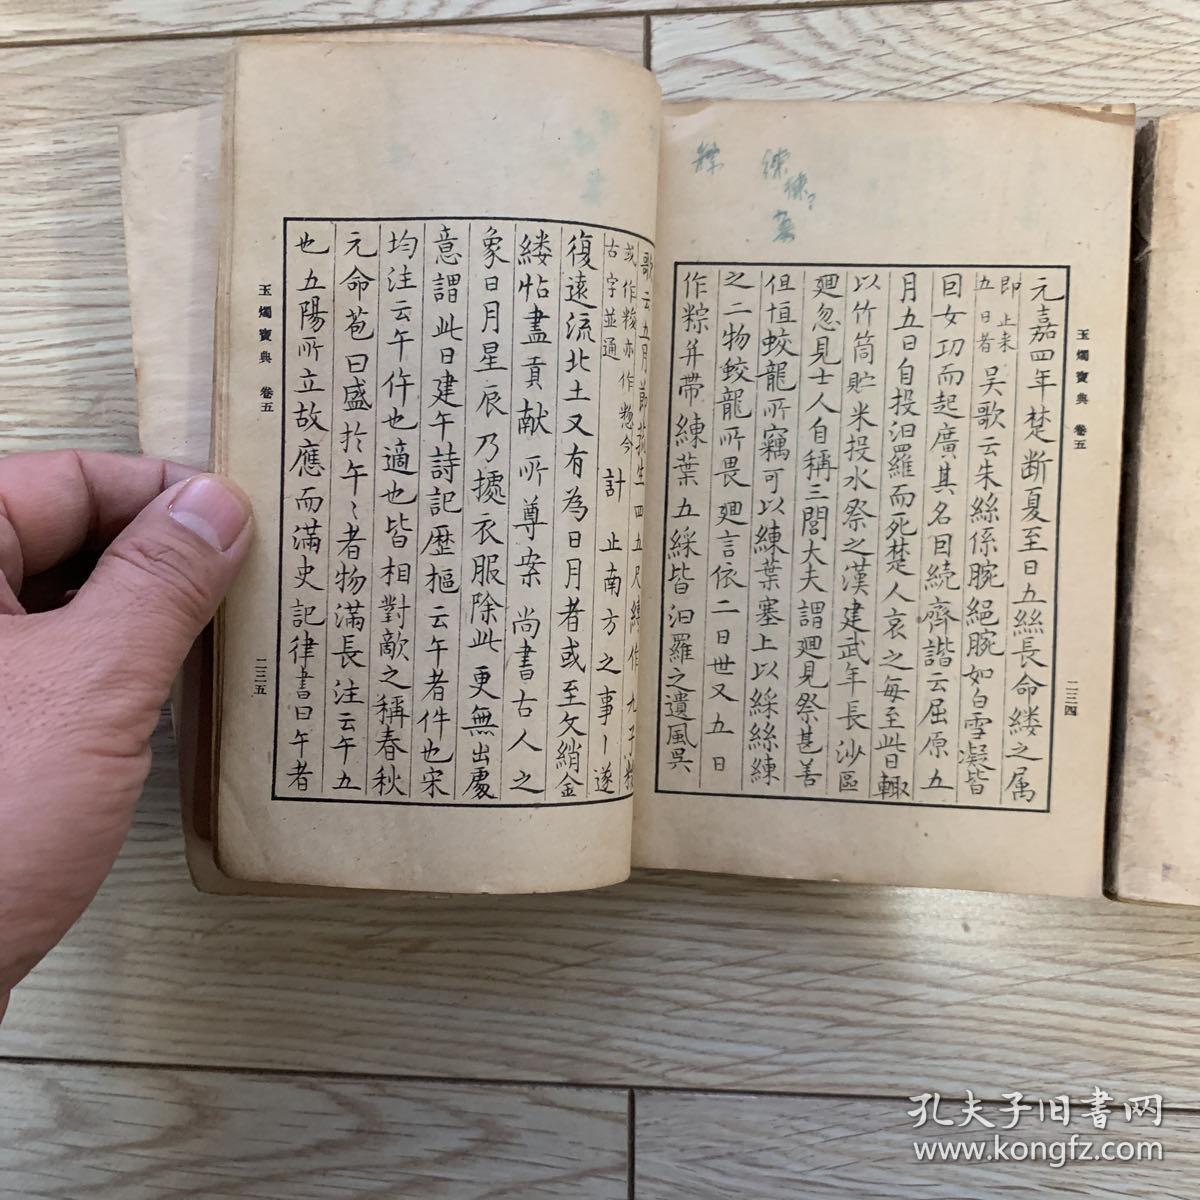 玉燭寶典 卷五
二三四
元嘉四年楚断夏至日五絲長命縷之属
即止来
五日昔
吴歌云朱絲係腕絕腕如白雪凝皆
因女功而起廣其名目続齊諧云屈原五
月五日自投汨羅而死楚人哀之每至此日輙
以竹筒貯米投水祭之漢建武年長沙區
廻忽見士人自稱三閭大夫謂廻見祭甚善
但垣蛟龍所竊可以練葉塞上以綵絲練
之二物蛟龍所畏廻言依二日世又五日
作粽并帶練葉五綵皆汨羅之遺風吴
歌云五月節菰生四五尺縛作九子粽
或作糉亦作惣今
古字並通
計止南方之事遂
復遠流北土又有為日月者或至文綃金
縷帖畫貢献所尊案尚書古人之
象日月星辰乃據衣服除此更無出處
意謂此日建午詩記歴樞云午者仵也宋
均注云午仵也適也皆相對敵之稱春秋
元命苞曰盛扵午〻者物滿長注云午五
也五陽所立故應而滿史記律書曰午者
玉燭寶典 卷五
二三五
孔夫子旧书网
www.kongfz.com